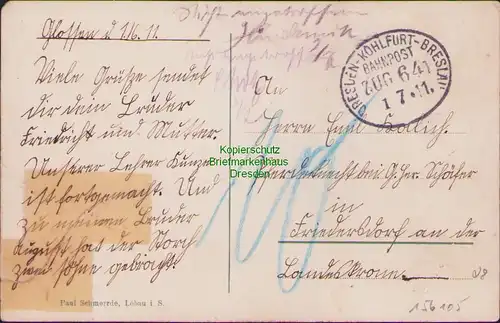 Glossen d 1/6. 11.
Viele Grüsze sendet
dir dein Bruder
Friedrich und Mutter.
Unserer Lehrer Kunze
ist fortgemacht. Und
zu meinen Bruder
August hat der Storch
zwei Söhne gebracht.
Paul Schmerrde, Löbau i. S.
DRESDEN-KOHLFURT-BRESLAU
BAHNPOST
ZUG 641
1 7. 11.
An
Herrn Emil
Pferdeknecht bei G. Her. Schäfer
in
Friedersdorf an der
Landeskrone.
Kopierschutz
Briefmarkenhaus
Dresden
156105